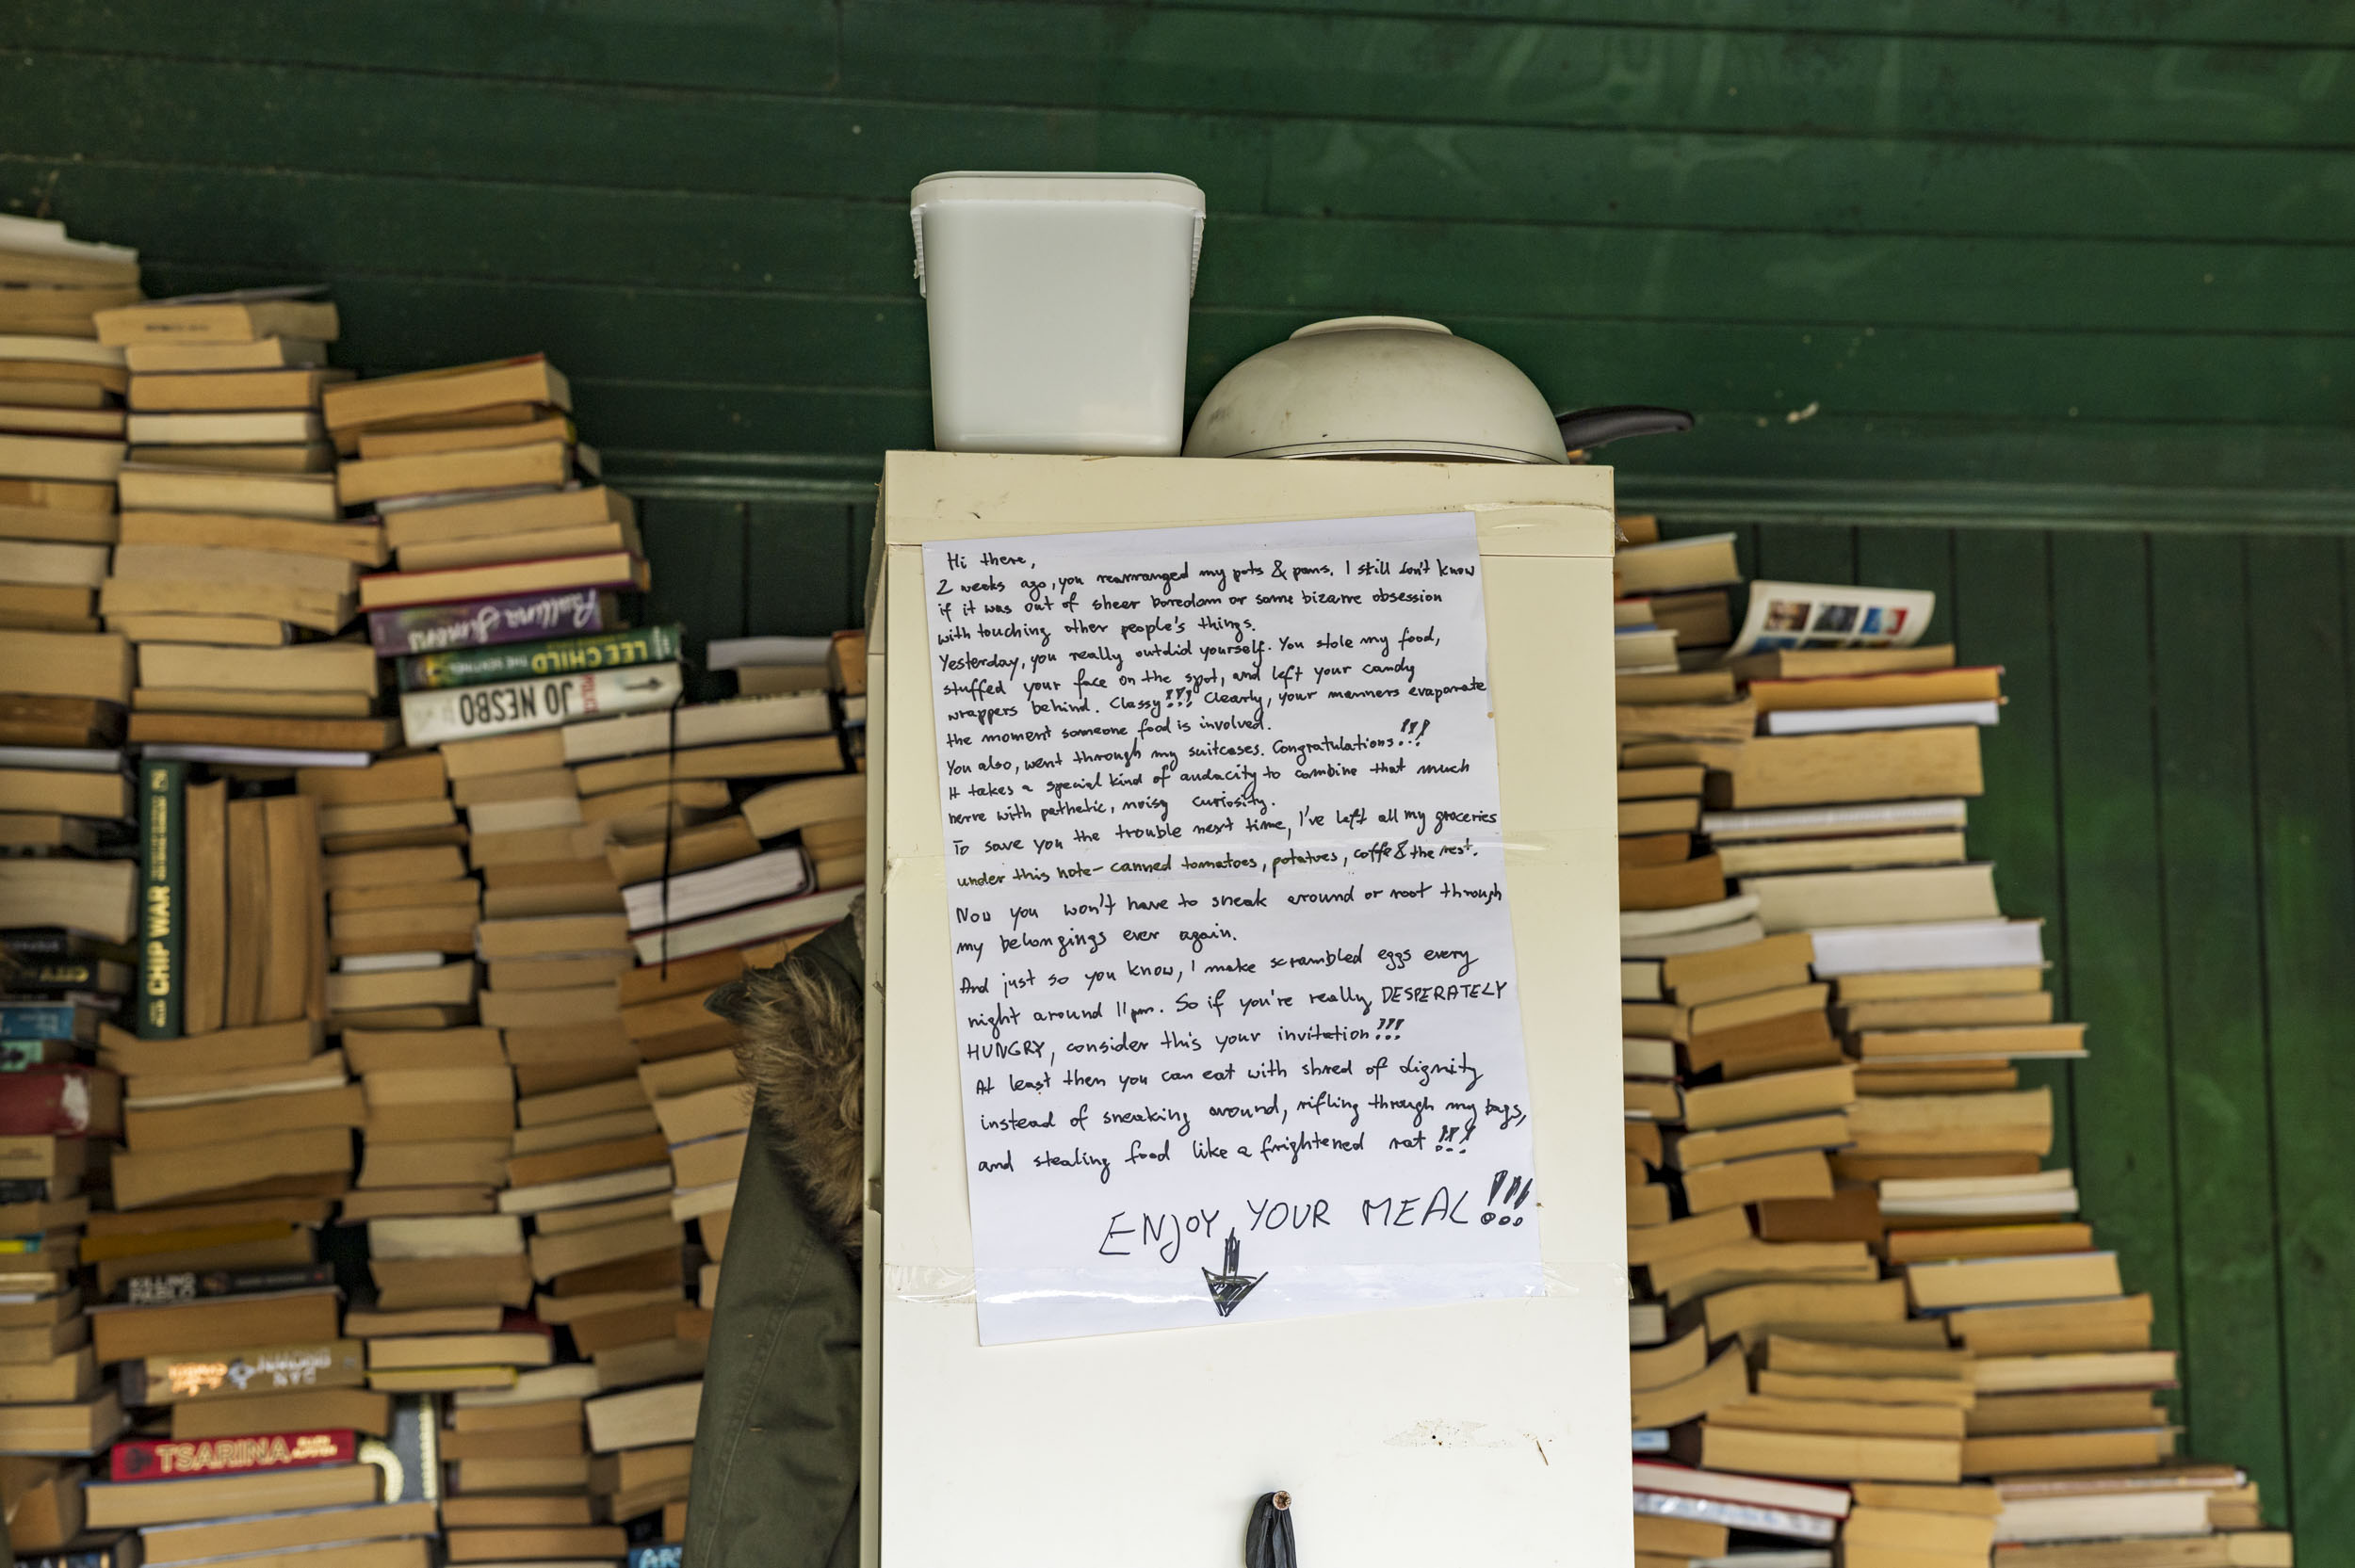 Hi there,
2 weeks ago, you rearranged my pots & pans. I still don't know
if it was out of sheer boredom or some bizarre obsession
with touching other people's things.
Yesterday, you really outdid yourself. You stole my food,
stuffed your face on the spot, and left your candy
wrappers behind. Classy!!! Clearly, your manners evaporate
the moment someone food is involved.
You also, went through my suitcases. Congratulations!!!
It takes a special kind of audacity to combine that much
nerve with pathetic, noisy curiosity.
To save you the trouble next time, I've left all my groceries
under this note- canned tomatoes, potatoes, coffe & the rest.
Now you won't have to sneak around or root through
my belongings ever again.
And just so you know, I make scrambled eggs every
night around 11pm. So if you're really DESPERATELY
HUNGRY, consider this your invitation!!!
At least then you can eat with shred of dignity
instead of sneaking around, rifling through my bags,
and stealing food like a frightened rat!!!
ENJOY YOUR MEAL!!!
Paullina Simons
LEE CHILD THE SENTINEL
JO NESBO
CHIP WAR
CITY
KILLING PABLO
DAN BROWN
TSARINA